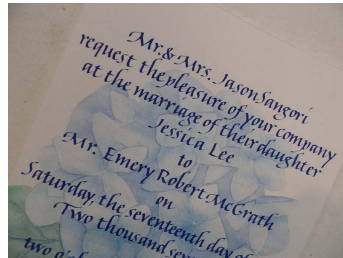 Mr. & Mrs. Jason Sangori
request the pleasure of your company
at the marriage of their daughter
Jessica Lee
to
Mr. Emery Robert McGrath
on
Saturday, the seventeenth day of
Two thousand
two